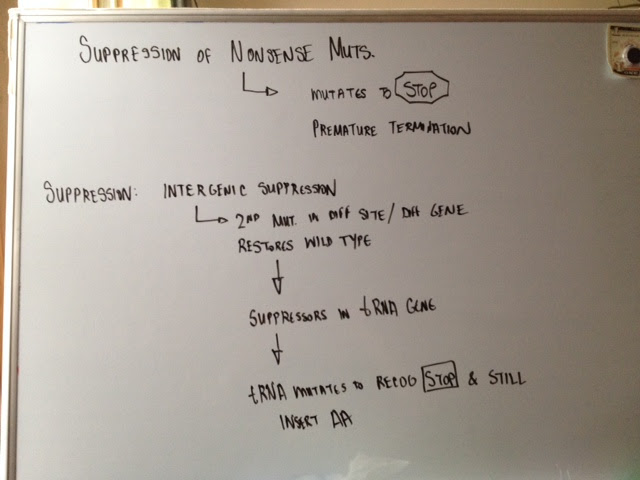 SUPPRESSION OF NONSENSE MUTS.
MUTATES TO STOP
PREMATURE TERMINATION
SUPPRESSION: INTERGENIC SUPPRESSION
2ND MUT. IN DIFF SITE/ DIFF GENE
RESTORES WILD TYPE
SUPPRESSORS IN tRNA GENE
tRNA MUTATES TO RECOG STOP & STILL
INSERT AA